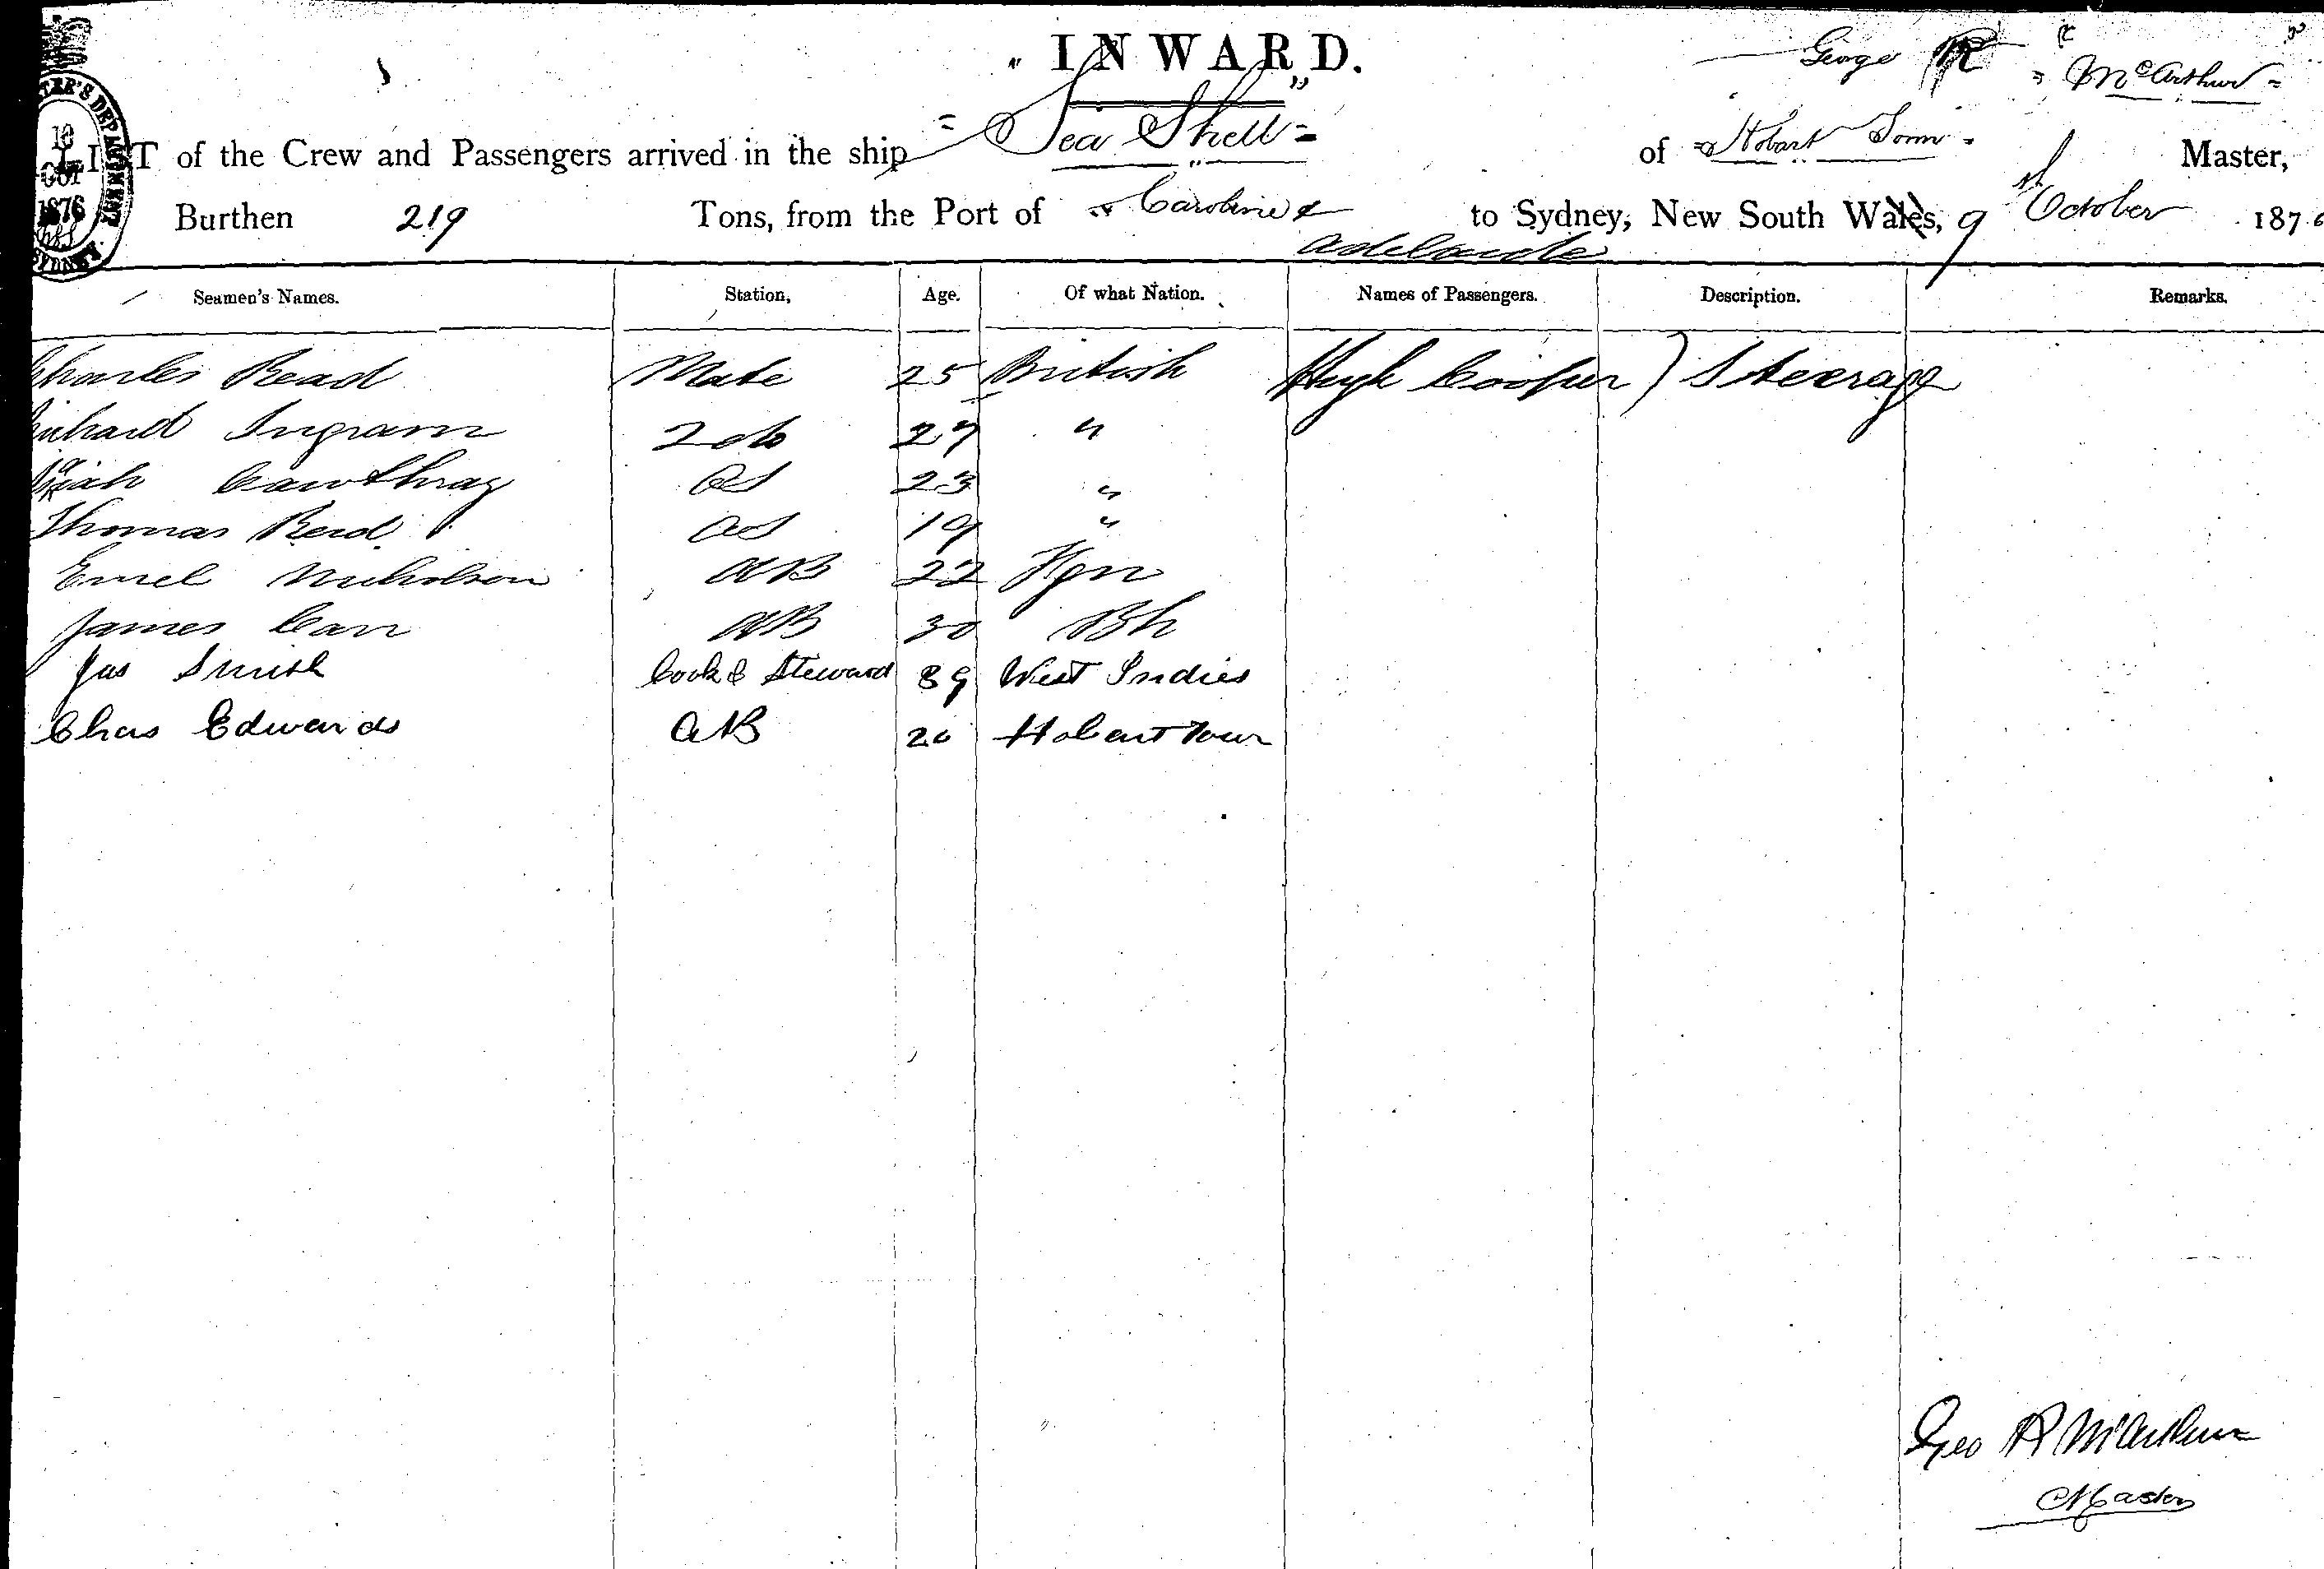 INWARD.
George R McArthur
LIST of the Crew and Passengers arrived in the ship Sea Shell of Hobart Town Master,
Burthen 219 Tons, from the Port of Caroline & Adelaide to Sydney, New South Wales, 9 October 1876
10 OCT 1876
SYDNEY
Seamen's Names. Station, Age. Of what Nation. Names of Passengers. Description. Remarks.
Charles Read Mate 25 British Hugh Cooper ) Steerage
Richard Ingram 2 do 27 "
Cawthray OS 23 "
Thomas Reid OS 19 "
Emel Nicholson AB 22 Fgn
James Carr AB 30 Bh
Jas Smith Cook & Steward 39 West Indies
Chas Edwards AB 20 Hobart Town
Geo R McArthur
Master